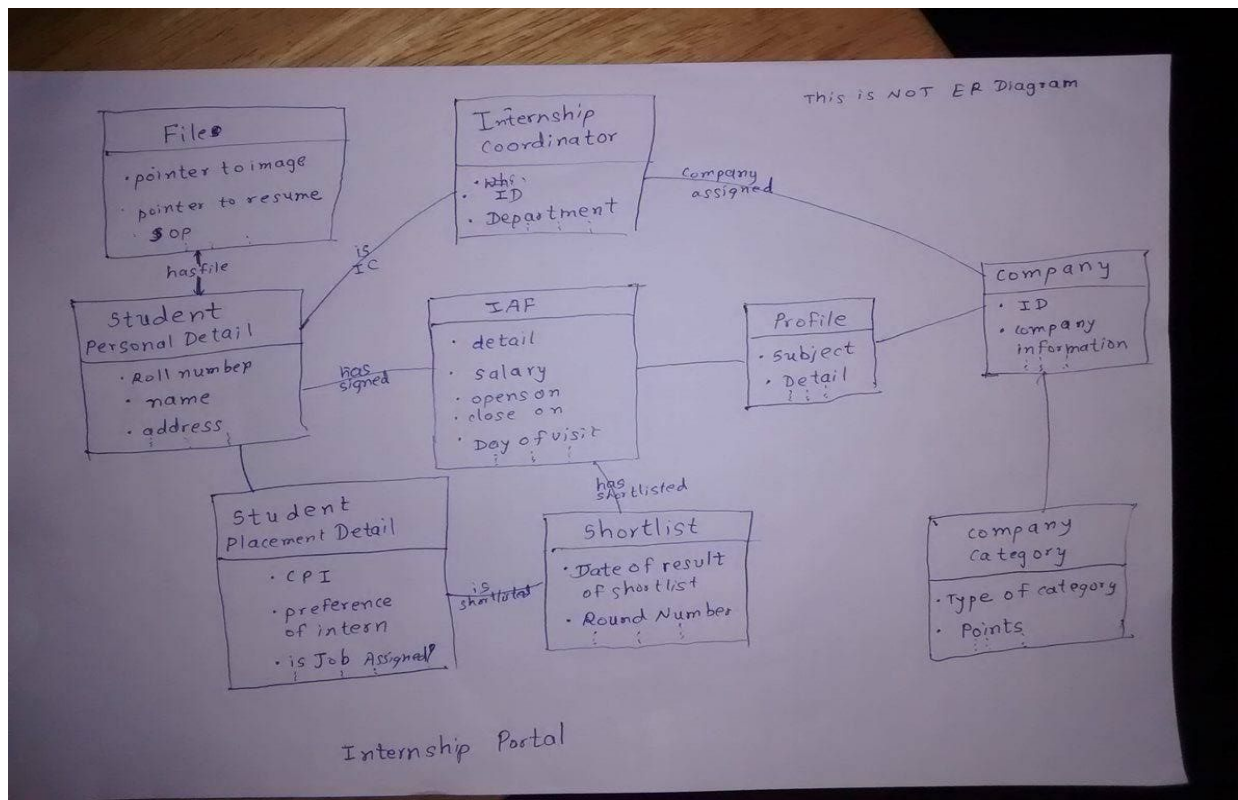 This is NOT ER Diagram
Files
• pointer to image
• pointer to resume
• SOP
hasfile
Internship
Coordinator
• ID
• Department
is
IC
Company
assigned
Company
• ID
• company
information
Student
Personal Detail
• Roll number
• name
• address
has
signed
IAF
• detail
• salary
• opens on
• close on
• Day of visit
Profile
• Subject
• Detail
has
shortlisted
Student
Placement Detail
• CPI
• preference
of intern
• is Job Assigned?
is
Shortlist
• Date of result
of shortlist
• Round Number
Company
Category
• Type of category
• Points
Internship Portal